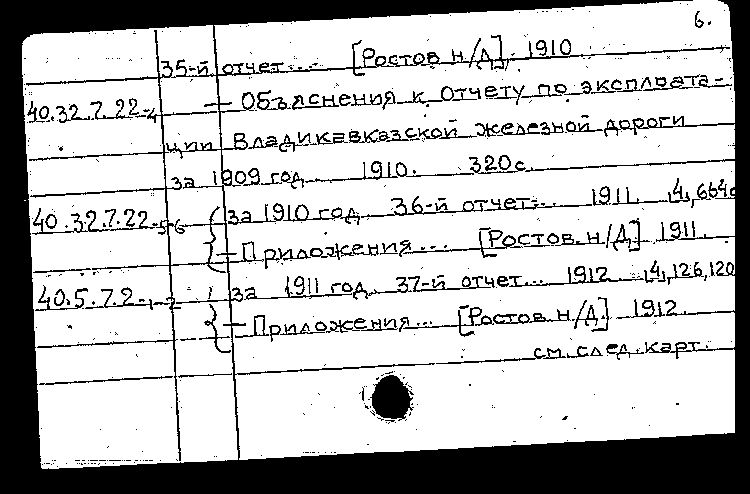 6.
35-й отчет... [Ростов н/Д], 1910
40.32.7.22-4 — Объяснения к отчету по эксплоата-
ции Владикавказской железной дороги
за 1909 год. 1910. 320с.
40.32.7.22-5-6 за 1910 год. 36-й отчет... 1911. 4, 664с
— Приложения... [Ростов. н/Д.] 1911.
40.5.7.2-1-2 за 1911 год. 37-й отчет... 1912 4, 126, 120
— Приложения... [Ростов. н/Д.] 1912.
см. след. карт.